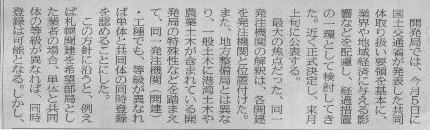 開発局では、今月５日に
国土交通省が発表した共同
体取り扱い要領を基本に、
業界や地域経済に与える影
響などを配慮し、経過措置
の一環として検討してき
た。近く正式決定し、来月
上旬に公表する。
最大の焦点だった、同一
発注機関の解釈は、各開建
を発注機関と位置付けた。
また、地方整備局とは異な
り、一般土木に港湾土木や
農業土木が含まれている開
発局の特殊性などを踏まえ
て、同一発注機関（開建）
・工種でも、等級が異なれ
ば単体と共同体の同時登録
を認めることにした。
この方針に沿うと、例え
ば札幌開建を希望部局とし
た業者の場合、単体と共同
体の等級が異なれば、同時
登録は可能となる。しかし、